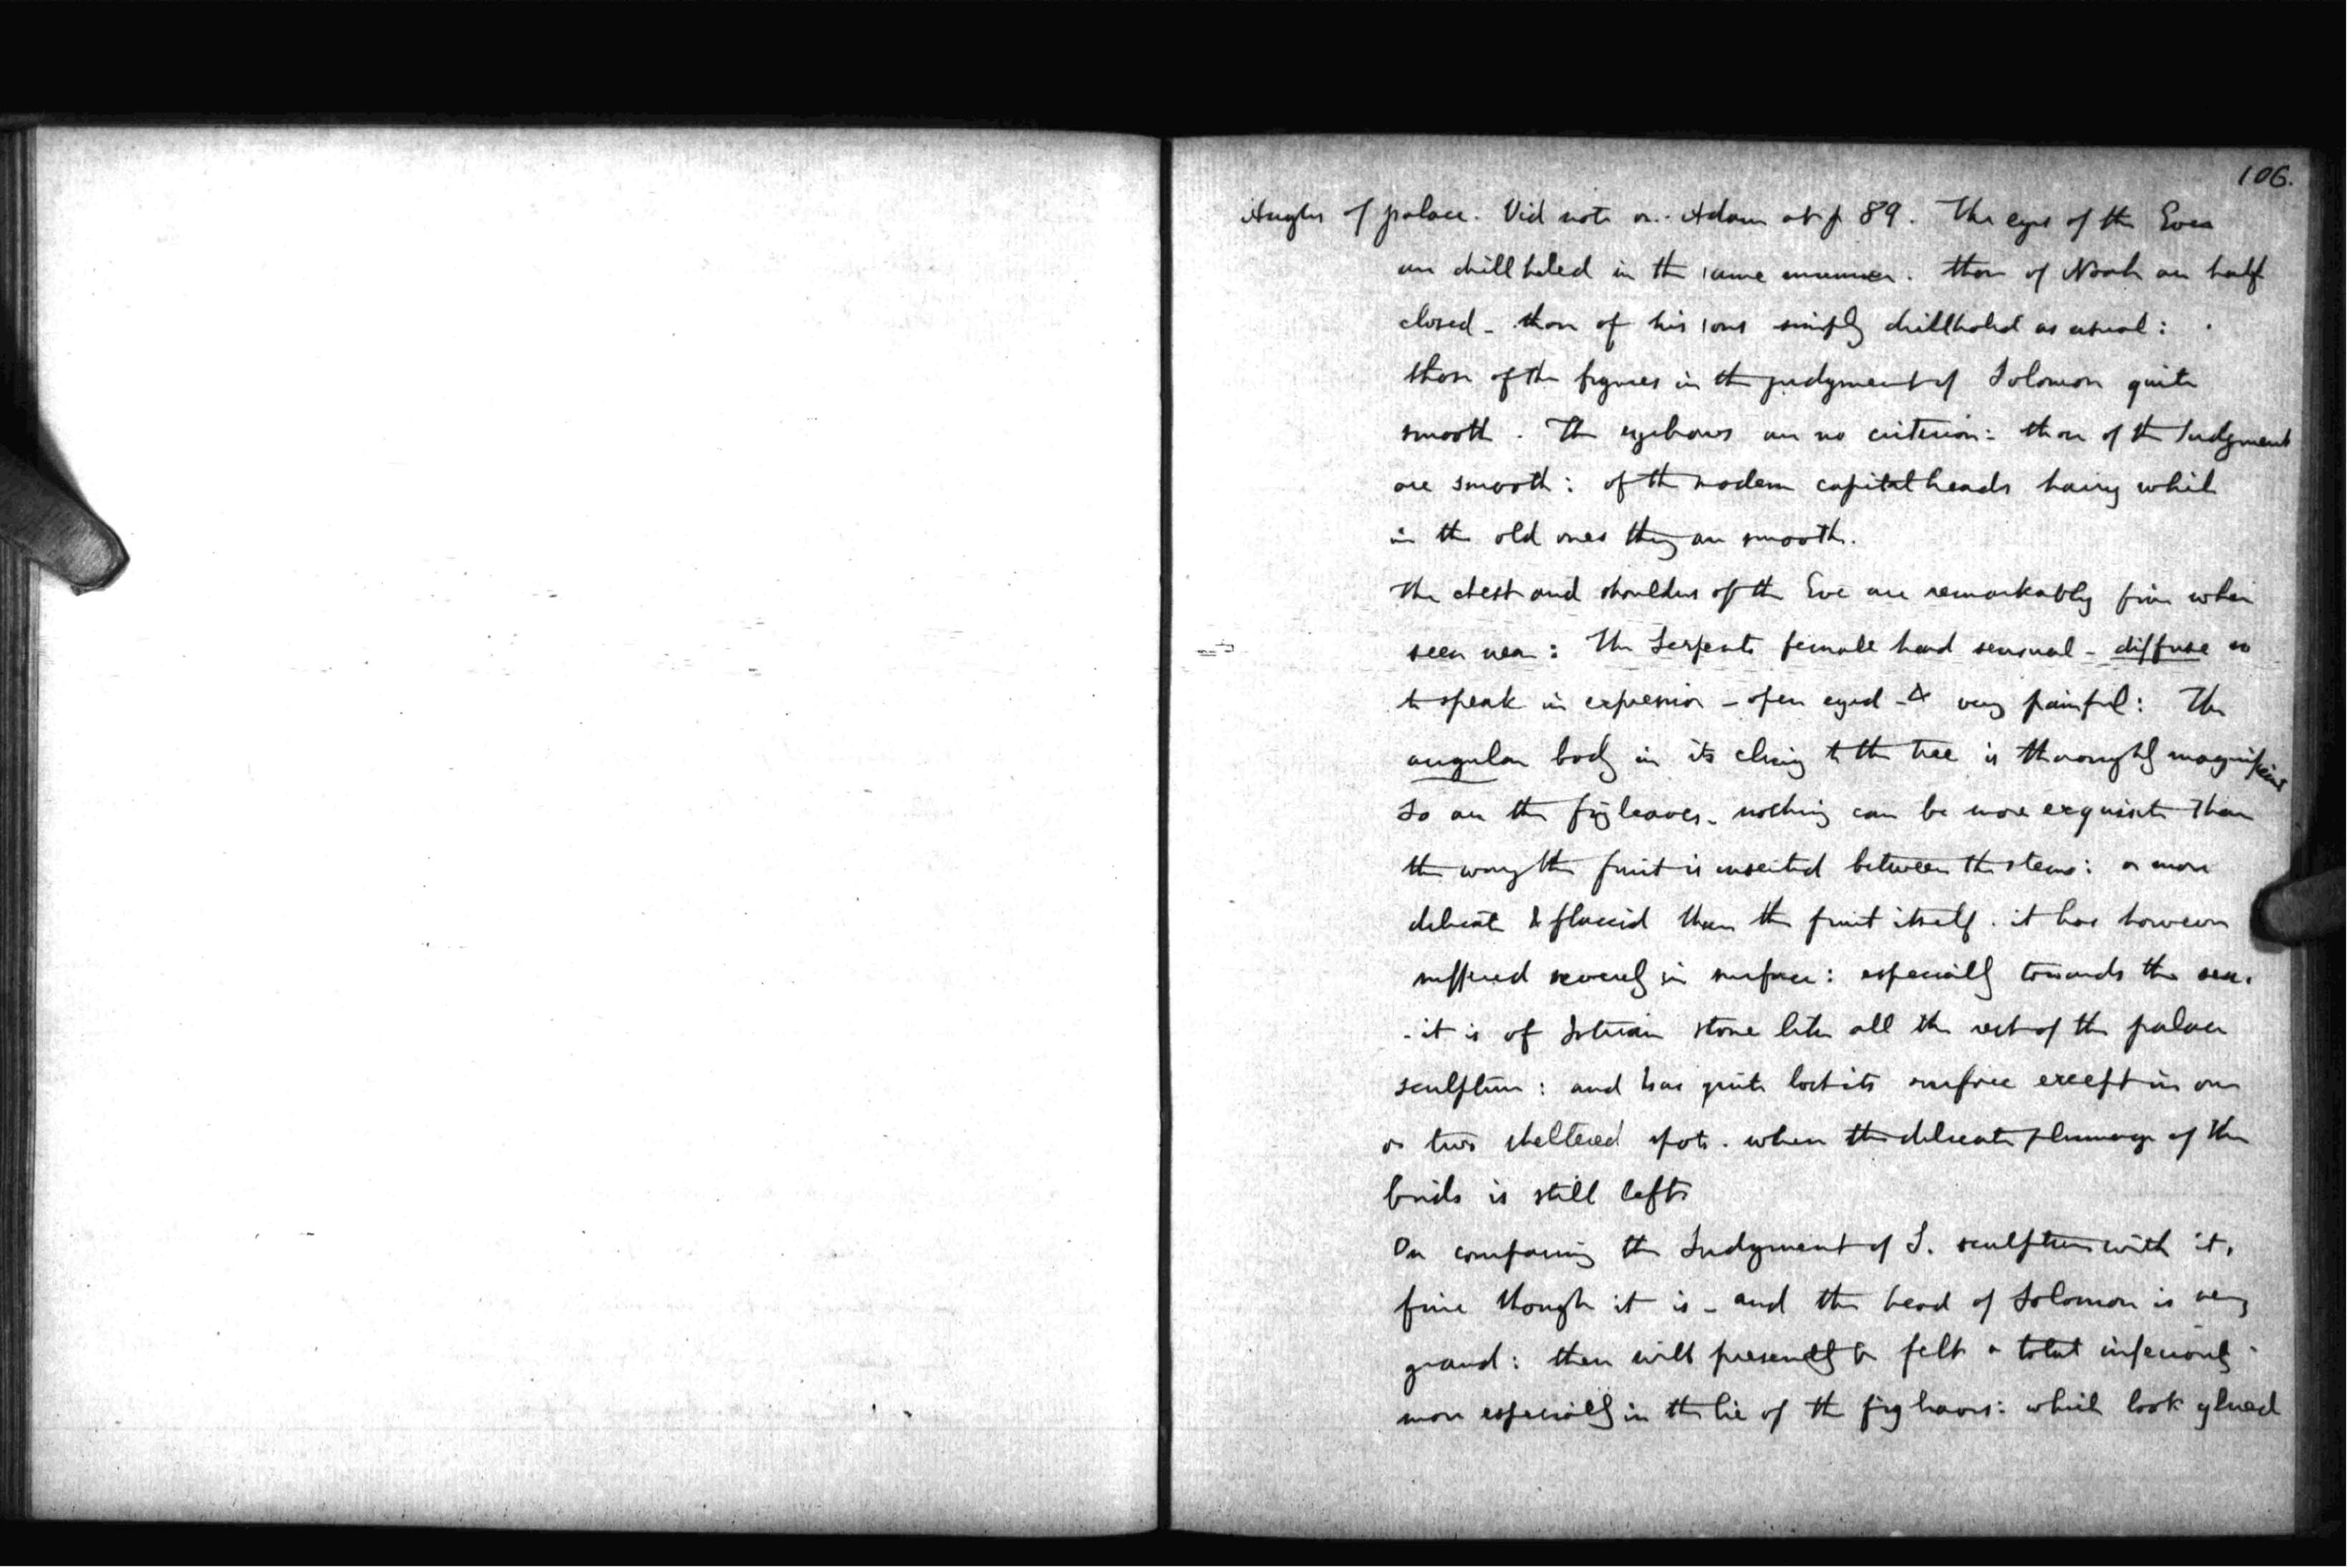 106.
Angles of palace. Vid note on Adam at p 89. The eyes of the Eves
are drillholed in the same manner. those of Noah are half
closed - those of his sons simply drillholed as usual:
those of the figures in the judgment of Solomon quite
smooth. The eyebrows are no criterion: those of the Judgment
are smooth: of the modern capital heads hairy while
in the old ones they are smooth.
The chest and shoulders of the Eve are remarkably fine when
seen near: The Serpents female head sensual - diffuse so
to speak in expression - open eyed - & very painful: The
angular body in its cling to the tree is thoroughly magnificent
So are the figleaves. nothing can be more exquisite than
the way the fruit is inserted between the stems: or more
delicate & flaccid than the fruit itself. it has however
suffered severely in surface: especially towards the sea.
it is of Istrian stone like all the rest of the palace
sculpture: and has quite lost its surface except in one
or two sheltered spots. where the delicate plumage of the
birds is still left
On comparing the Judgment of S. sculpture with it,
fine though it is - and the head of Solomon is very
grand: there will presently be felt a total inferiority
more especially in the lie of the fig leaves: which look glued